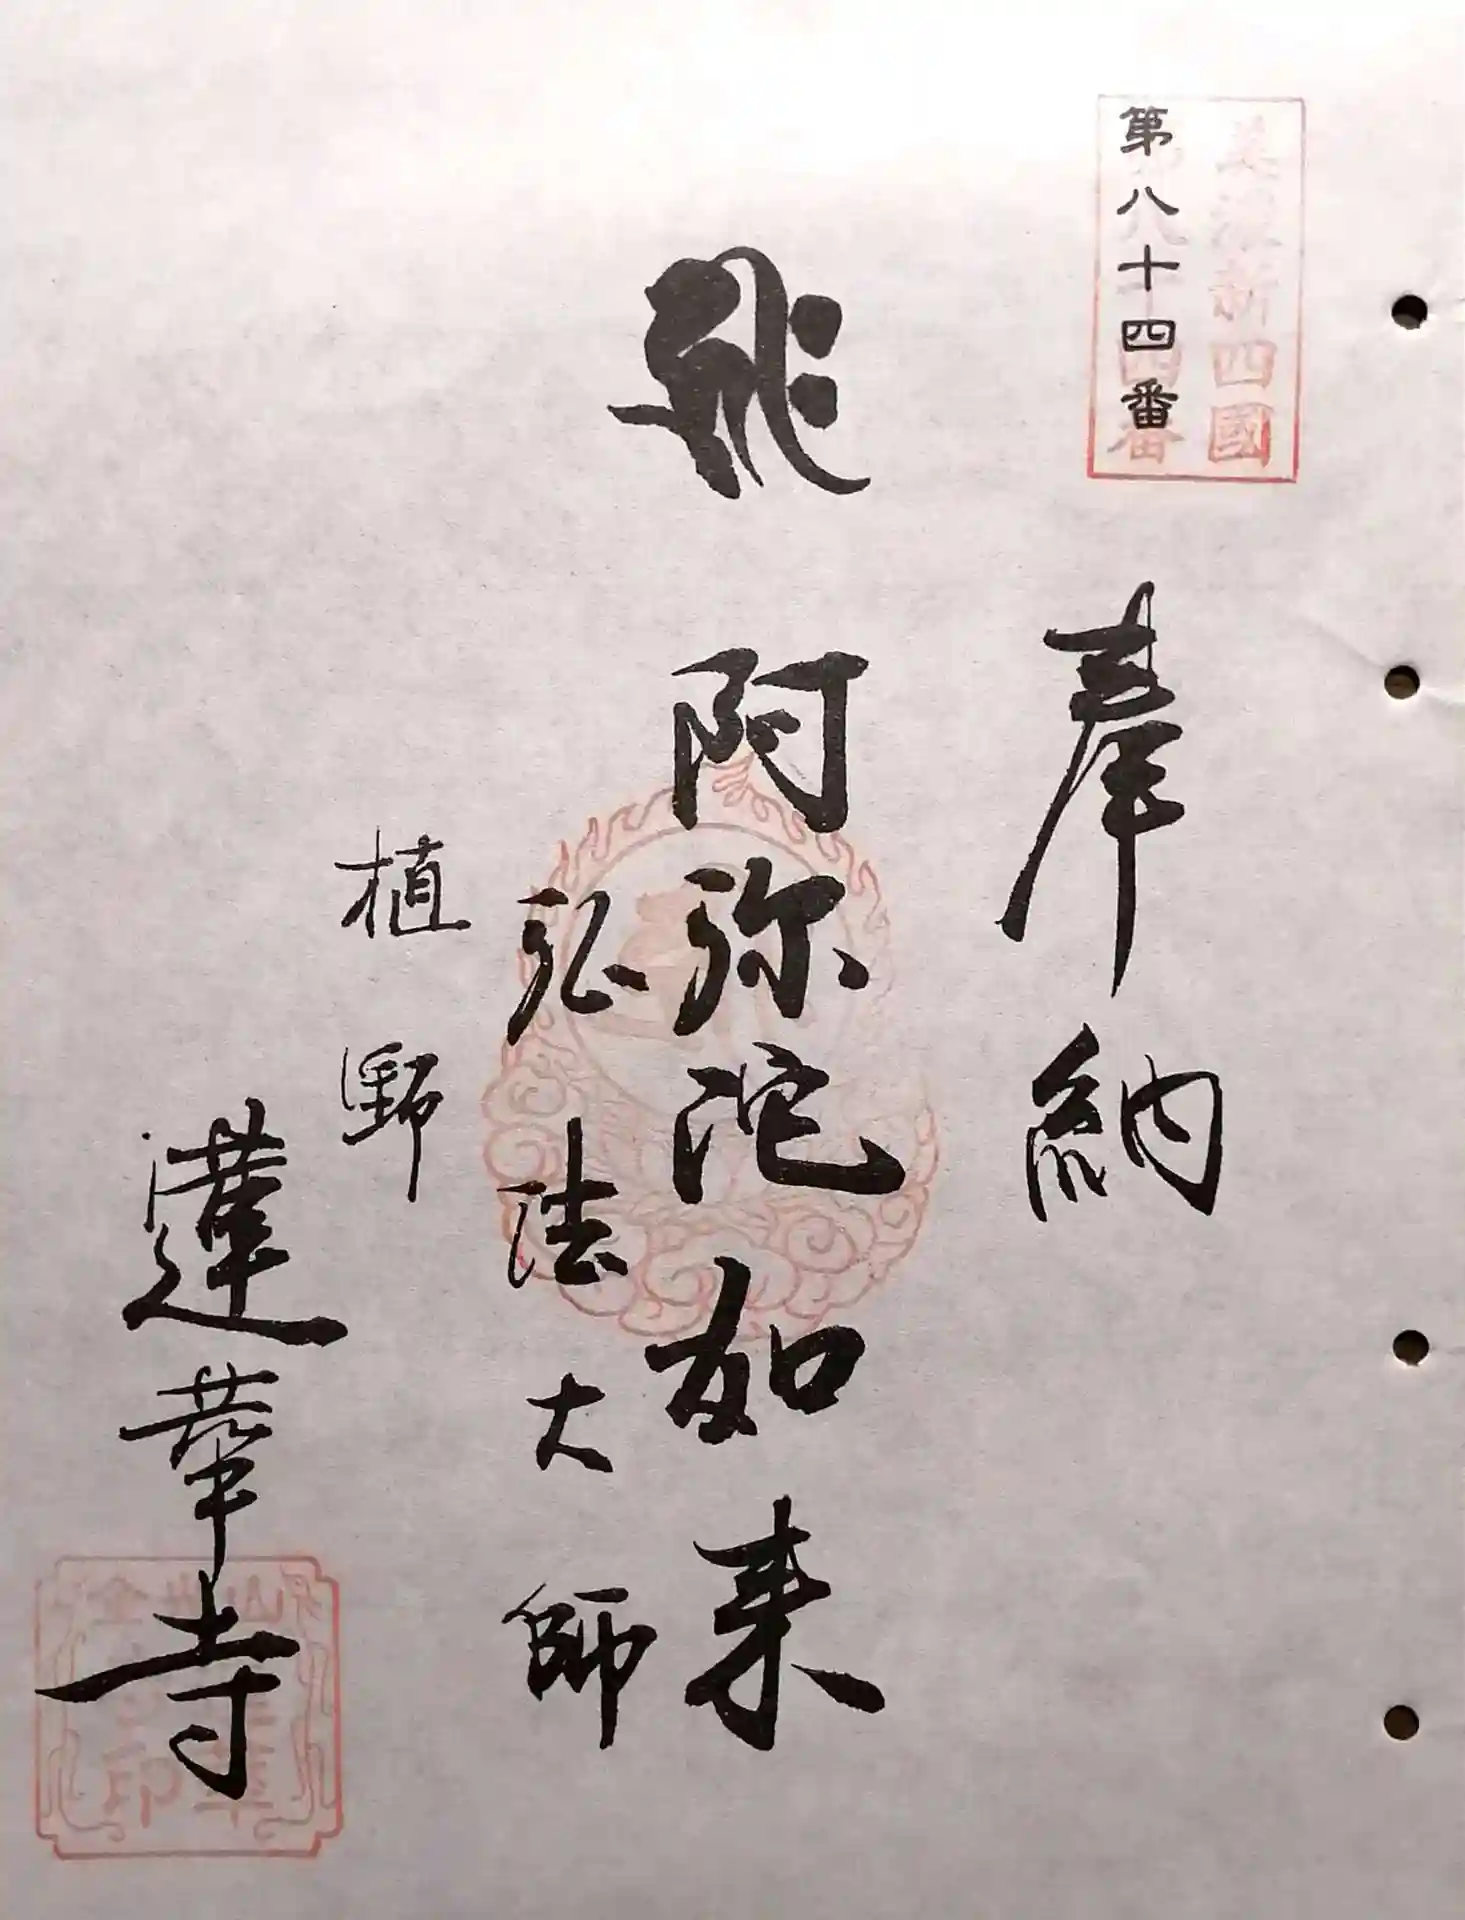 美濃新四國
第八十四番
第八十四番
奉納
阿弥陀如来
弘法大師
植野
蓮華寺